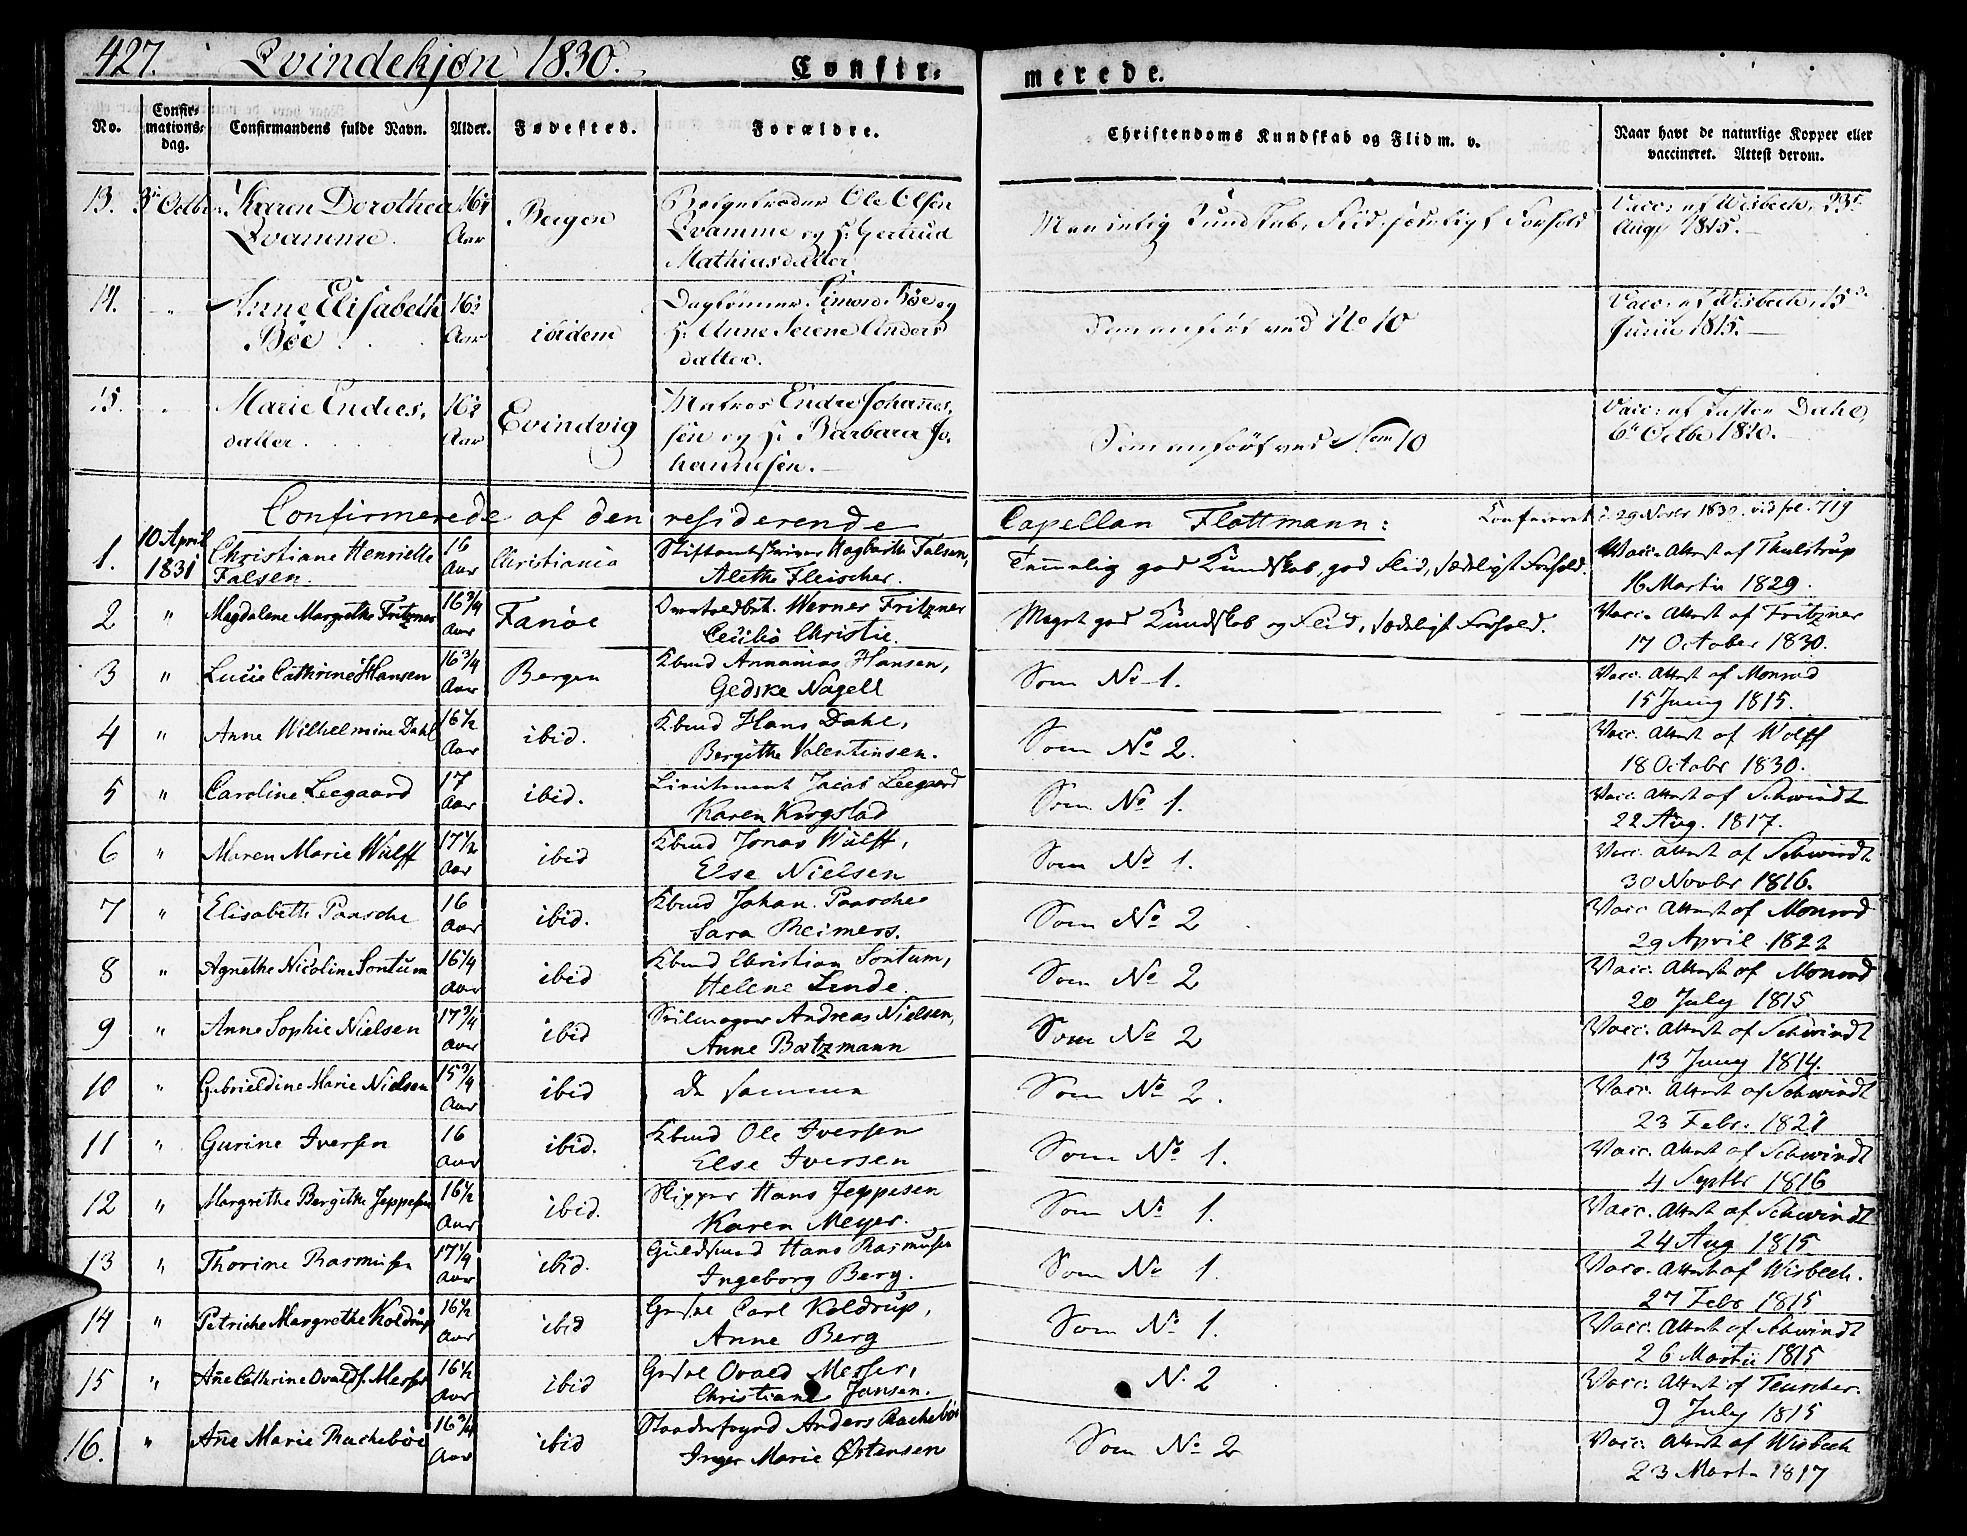 427. Qvindekjøn 1830. Confir- merede.
No. Confir-mations-dag. Confirmandens fulde Navn. Alder. Fødested. Forældre. Christendoms Kundskab og Flid m. v. Naar havt de naturlige Kopper eller
vaccineret. Attest derom.
13. 3die Octbr. Karen Dorothea 16½ Bergen Ole Olsen Kundskab, Flid, Forhold Vacc: af Wisbech, 23de
Qvamme. Aar Qvamme og H: Gertrud Augt 1815.
Mathiasdatter
14. " Anne Elisabeth 16½ ibidem Simon Bøe og Som anført ved No 10 Vacc: af Wisbech, 15de
Bøe Aar H: Anne Serene Anders Junii 1815.
datter.
15. " Marie Endres, 16½ Evindvig Matros Endre Johannes, Som anført ved Nom 10 Vacc: af Dahl,
datter. Aar sen og H: Barbara Jo 6te Octbr 1820.
hannesen.
Confirmerede af den residerende Capellan Flottmann: Confereret d. 29 Novbr 1832. vid fol. 719
1. 10 April Christiane Henriette 16 Christiania Stiftamtskriver Hagbarth Falsen, Temmelig god Kundskab, god Flid, sædeligt Forhold. Vacc. Attest af Thulstrup
1831 Falsen. Aar Alethe Fleischer. 16 Martii 1829.
2 " Magdalene Margrethe Fritzner 16¾ Fanøe Overtoldbet. Werner Fritzner Meget god Kundskab og Flid, sædeligt Forhold. Vacc. Attest af Fritzner
Aar Cecilia Christie. 17 October 1830.
3 " Lucie Cathrine Hansen 16¾ Bergen Kbmd Annanias Hansen, Som No 1. Vacc. Attest af Monrad
Aar Gedske Nagell 15 Juny 1815.
4 " Anne Wilhelmine Dahl 16½ ibid. Kbmd Hans Dahl, Som No 2. Vacc. Attest af Wolff
Aar Bergithe Valentinsen. 18 Octobr 1830.
5 " Caroline Leegaard 17 ibid. Lieutenant Jacob Leegaard Som No 1. Vacc. Attest af Schwindt
Aar Karen Krogstad 22 Aug. 1817.
6 " Maren Marie Wulff 17½ ibid Kbmd Jonas Wulff, Som No 1. Vacc. Attest af Schwindt
Aar Else Nielsen 30 Novbr 1816.
7 " Elisabeth Paasche 16 ibid. Kbmd Johan Paasche Som No 2 Vacc. Attest af Monrad
Aar Sara Reimers. 29 April 1822
8 " Agnethe Nicoline Sontum 16¼ ibid Kbmd Christian Sontum, Som No 2 Vacc. Attest af Monrad
Aar Helene Linde. 20 July 1815
9 " Anne Sophie Nielsen 17¾ ibid Seilmager Andreas Nielsen, Som No 2 Vacc. Attest af Schwindt
Aar Anne Batzmann 13 Juny 1814.
10 " Gabrieldine Marie Nielsen 15¾ ibid de samme Som No 2. Vacc. Attest af Schwindt
Aar 23 Febr. 1821
11 " Gurine Iversen 16 ibid. Kbmd Ole Iversen Som No 1. Vacc. Attest af Schwindt
Aar Else Iversen 4 Septbr 1816
12 " Margrethe Bergithe Jeppesen 16½ ibid. Skipper Hans Jeppesen Som No 1. Vacc. Attest af Schwindt
Aar Karen Meyer. 24 Aug 1815
13 " Thorine Rasmusen 17¼ ibid. Guldsmed Hans Rasmusen Som No 1. Vacc. Attest af Wisbech.
Aar Ingeborg Berg. 27 Febr 1815
14 " Petriche Margrethe Koldrup 16½ ibid Carl Koldrup, Som No 1. Vacc. Attest af Schwindt
Aar Anne Berg 26 Martii 1815
15 " Ane Cathrine Ovalds. Messer 16½ ibid Ovald Messer, N. 2 Vacc. Attest af Teuscher.
Aar Christiane Jansen. 9 July 1815
16. " Ane Marie Rachebøe 16¾ ibid Anders Rachebøe Som No 2 Vacc. Attest af Wisbech
Aar Inger Marie Østensen 23 Mart. 1817